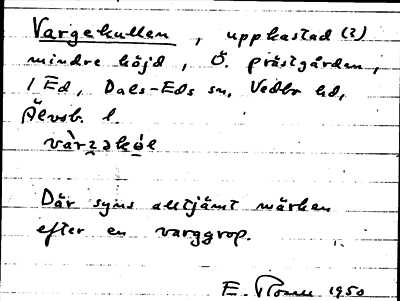 Vargekullen, uppkastad (?)
mindre höjd, Ö. prästgården,
1 Ed, Dals-Eds sn, Vedbo hd,
Älvsb. l.
Där syns alltjämt märken
efter en varggrop.
E. 1950